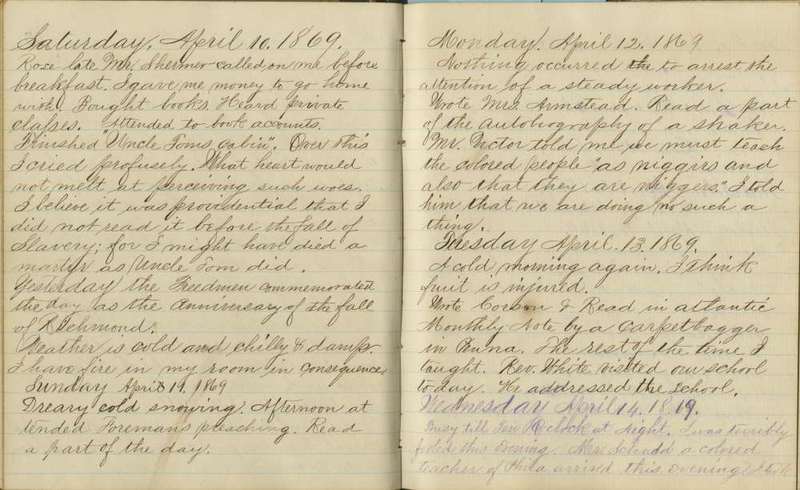 Saturday. April 10. 1869.
Rose late Mr. Shermer called on me before
breakfast. I gave me money to go home
with. Bought books. Heard private
classes. Attended to book accounts.
Finished "Uncle Toms cabin". Over this
I cried profusely. What heart would
not melt at perceiving such woes.
I believe it was providential that I
did not read it before the fall of
Slavery; for I might have died a
martyr as Uncle Tom did.
Yesterday the Freedmen commemorated
the day as the anniversary of the fall
of Richmond.
Weather is cold and chilly & damp.
I have fire in my room in consequence
Sunday April 11. 1869
Dreary cold snowing. Afternoon at
tended Foremans preaching. Read
a part of the day.
Monday. April 12. 1869
Nothing occurred the to arrest the
attention of a steady worker.
Wrote Mrs. Armstead. Read a part
of the autobiography of a shaker.
Mr. Victor told me we must teach
the colored people "as niggirs and
also that they are niggers." I told
him that we are doing no such a
thing.
Tuesday April. 13. 1869.
A cold morning again. I think
fruit is injured.
Wrote & Read in atlantic
Monthly Note by a carpetbagger
in The rest of the time I
taught. Rev. White visited our school
to day. He addressed the school.
Wednesday April 14. 1869.
Busy till Ten O'clock at Night. I was terribly
this evening. a colored
teacher of Phila arrived this evening